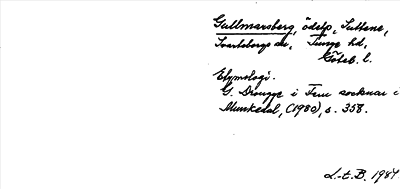 Gullmarsberg, ödelp, Sattene,
Svarteborgs sn, Tunge hd,
Göteb. l.
Etymologi.
G. Drougge i Fem socknar i
Munkedal, (1980), s. 358.
L-t. B. 1984